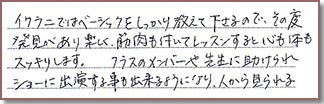 イクラニではベーシックをしっかり教えて下さるので、その度
発見があり楽しく、筋肉も付いてレッスンすると心も体も
スッキリします。 クラスのメンバーや先生に助けられ
ショーに出演する事も出来るようになり、人から見られる